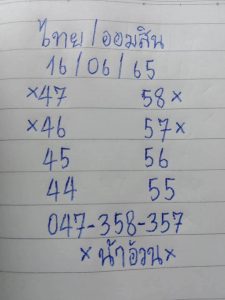 ไทย/ออมสิน
16/06/65
×47 58×
×46 57×
45 56
44 55
047-358-357
×น้าอ้วน×